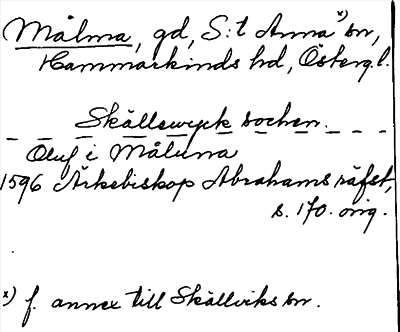 Målma, gd, S:t Anna x) sn,
Hammarkinds hd, Östergl.
Skällewyck sochen.
Oluf i Måluna
1596 Ärkebiskop Abrahams räfst,
s. 170. orig.
x) f. annex till Skällviks sn.